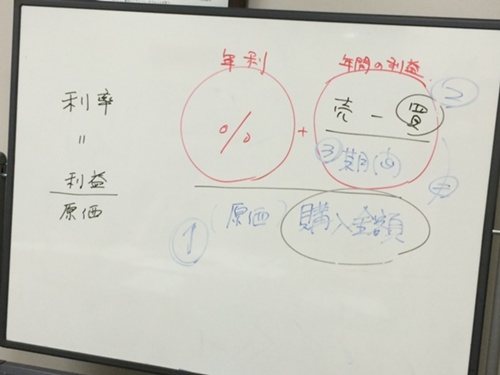 年利 年間の利益
利率 売 - 買 ②
〃 % +
③ 期(
利益
原価 (原価) 購入金額
①